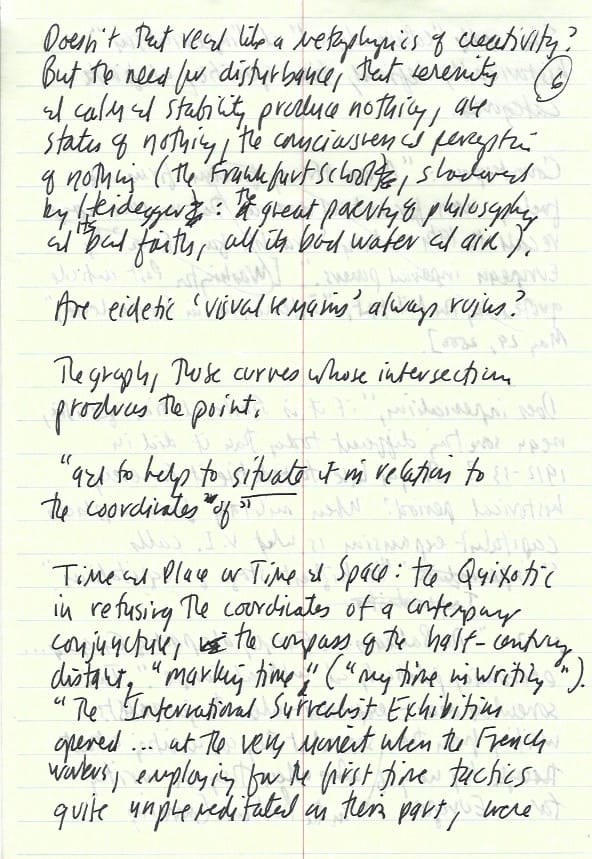 Doesn't that read like a metaphysics of creativity?
But the need for disturbance, that serenity
6
and calm and stability produce nothing, are
states of nothing, the consciousness perception
of nothing (the Frankfurt School, shadowed
by Heidegger: The great poverty of philosophy
and its bad faith, all its bad water and air).
Are eidetic 'visual remains' always ruins?
The graph, those curves whose intersection
produces the point.
"and to help to situate it in relation to
the coordinates" of
Time and Place or Time and Space: the Quixotic
in refusing the coordinates of a contemporary
conjuncture, the compass of the half-century
distant, "marking time," ("my time in writing").
"The International Surrealist Exhibition
opened ... at the very moment when the French
workers, employing for the first time tactics
quite unpremeditated on their part, were